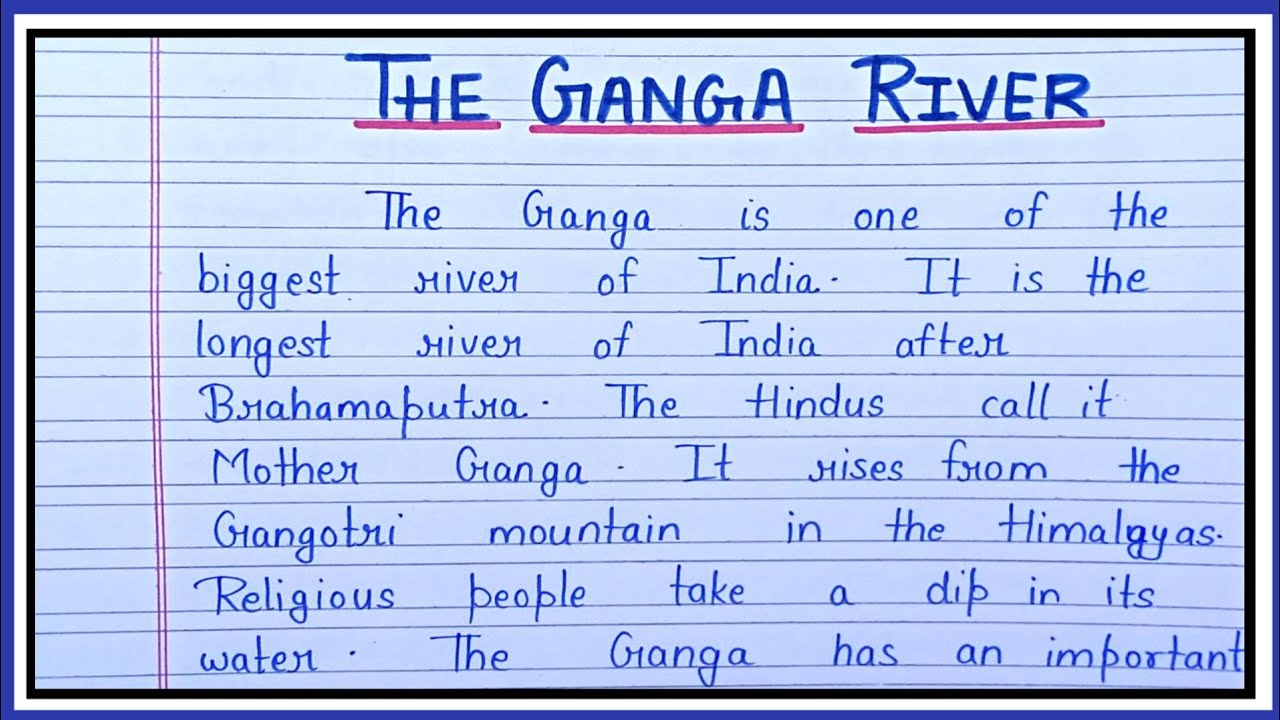 THE GANGA RIVER
The Ganga is one of the
biggest river of India. It is the
longest river of India after
Brahamaputra. The Hindus call it
Mother Ganga. It rises from the
Gangotri mountain in the Himalayas.
Religious people take a dip in its
water. The Ganga has an important